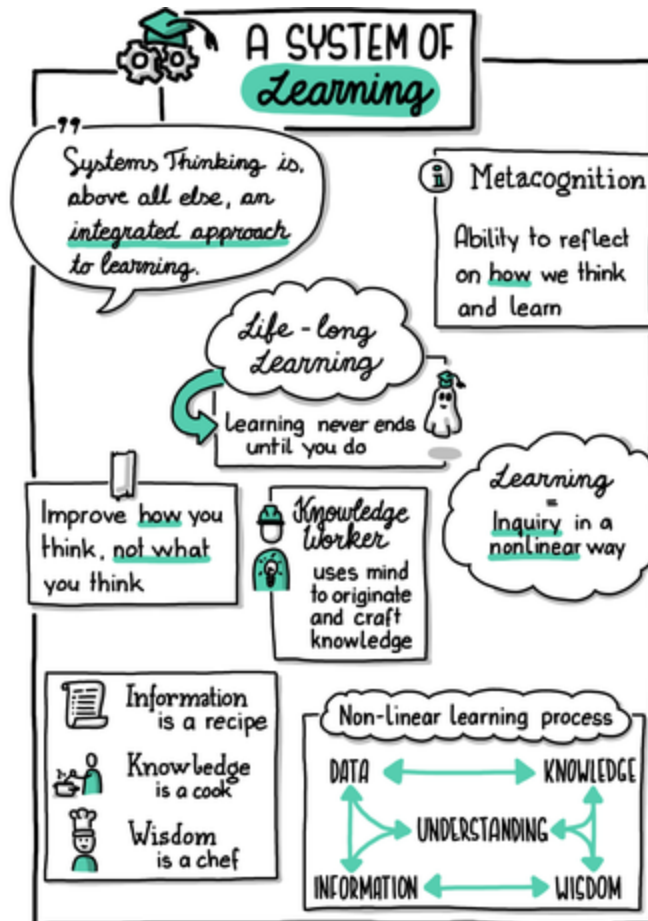 A SYSTEM OF
Learning
"
Systems Thinking is,
above all else, an
integrated approach
to learning.
i Metacognition
Ability to reflect
on how we think
and learn
Life-long
Learning
Learning never ends
until you do
Learning
=
Inquiry in a
nonlinear way
Improve how you
think, not what
you think
Knowledge
Worker
uses mind
to originate
and craft
knowledge
Information
is a recipe
Knowledge
is a cook
Wisdom
is a chef
Non-linear learning process
DATA KNOWLEDGE
UNDERSTANDING
INFORMATION WISDOM